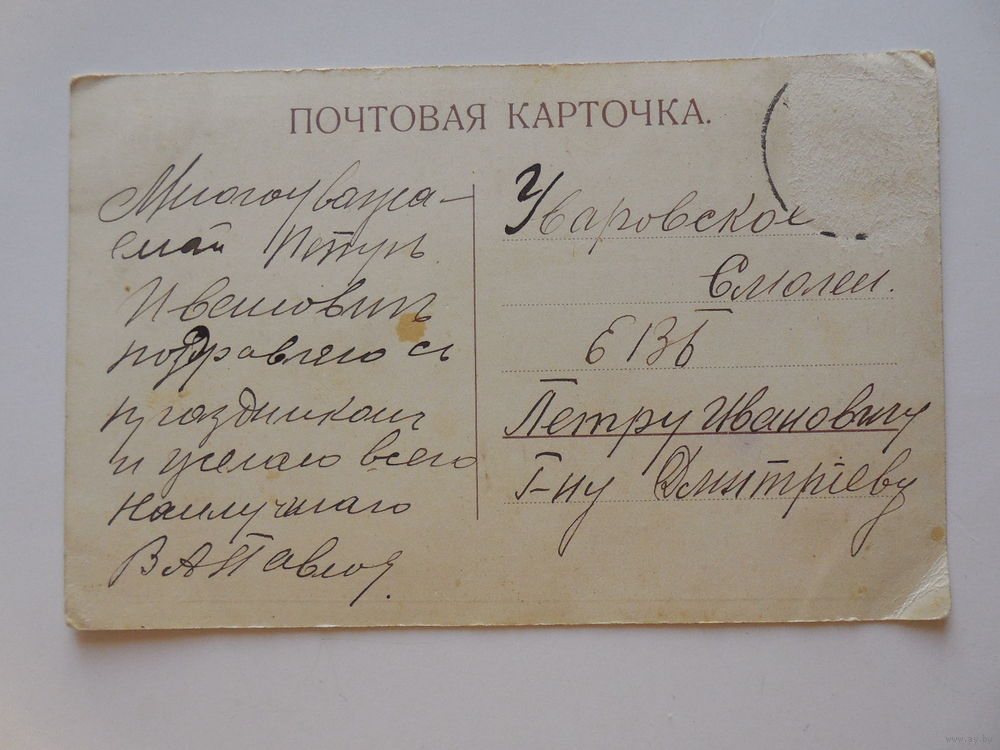 ПОЧТОВАЯ КАРТОЧКА.
Многоуважа-
емый Петръ
Ивановичъ
поздравляю съ
праздникомъ
и желаю всего
наилучшаго
В А Павлов
Уваровское
Смолен.
Петру Ивановичу
Г-ну Дмитріеву
www.ay.by